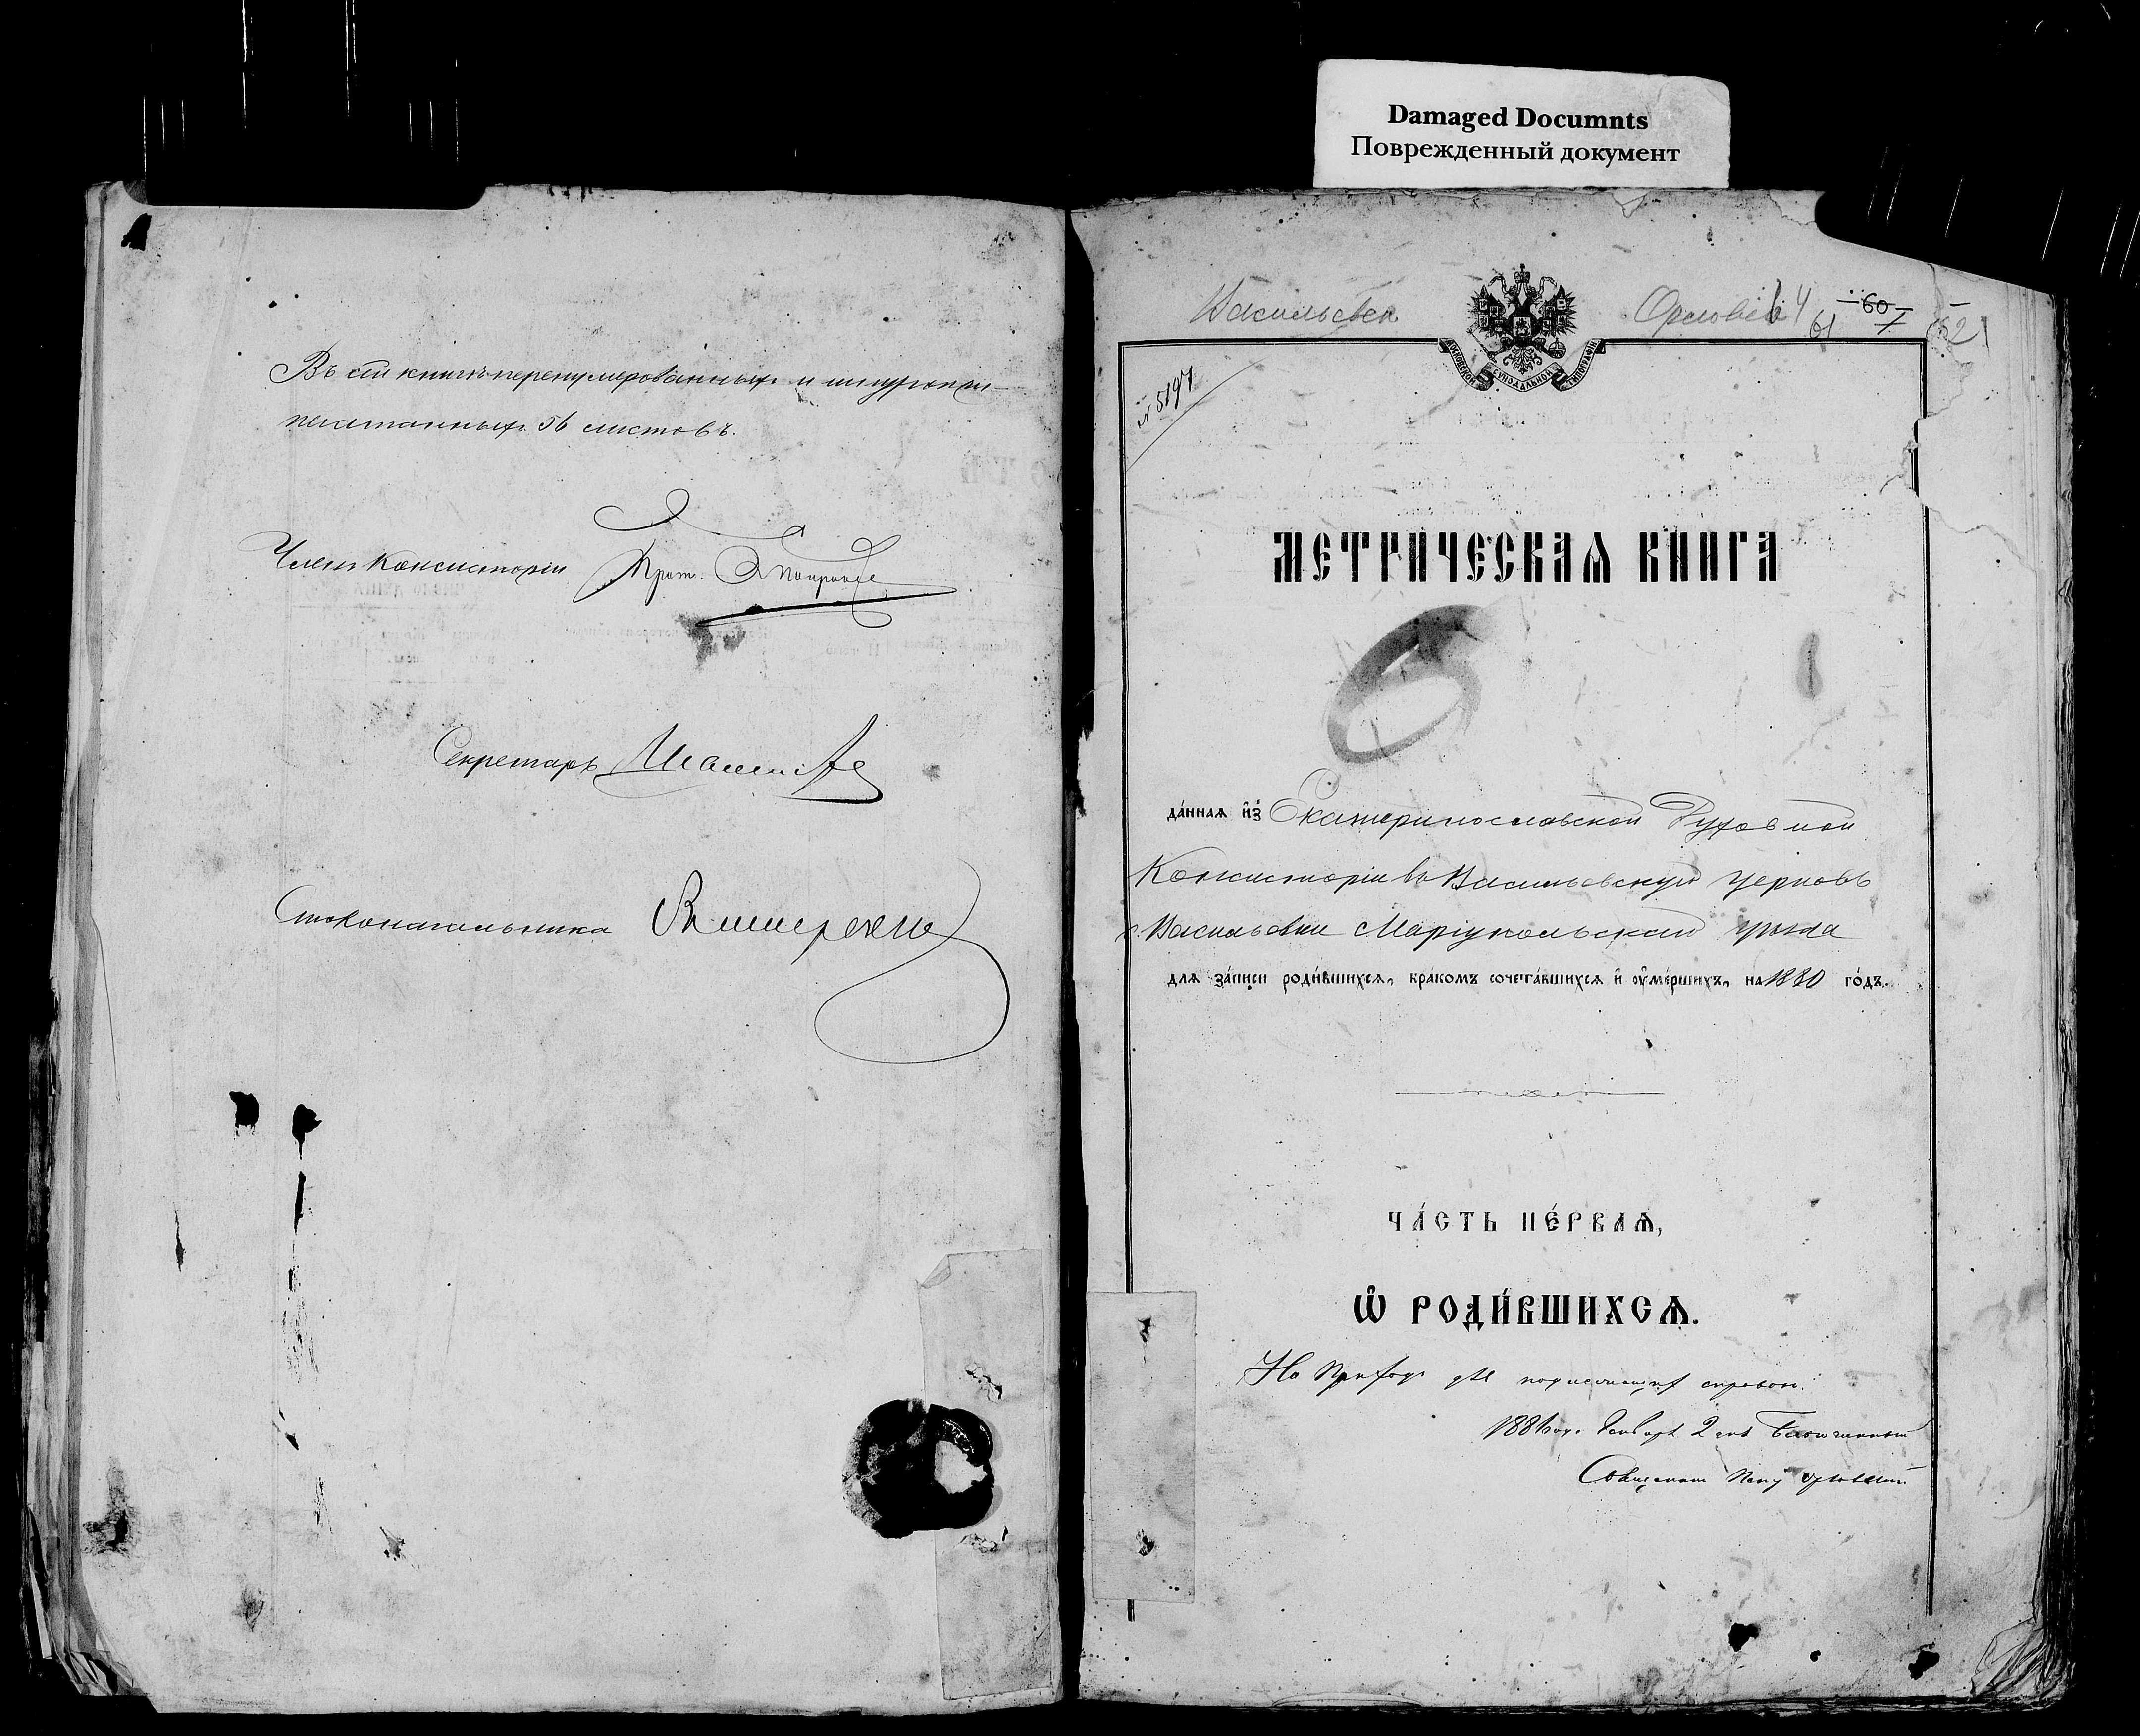 Damaged Documnts
Поврежденный документ
Въ сей книгѣ перенумерованныхъ и шнуропри-
печатанныхъ 56 листовъ.
Членъ Консисторіи Прот.
Секретарь
Столоначальника
Васильевск.
64 61 60 7 62
МОСКОВСКОЙ СѴНОДАЛЬНОЙ ТИПОГРАФІИ
№ 5197
МЕТРИЧЕСКАѦ КНИГА
да́ннаѧ и҆з̾ Екатеринославской Духовной
Консисторіи въ Васильевскую церковь
с. Васильевки Маріупольскаго уѣзда
длѧ за́писи роди́вшихсѧ, бракомъ сочета́вшихсѧ и҆ ᲂу҆ме́ршихъ, на 1880 го́дъ.
ЧА́СТЬ ПЕ́РВАѦ,
Ѡ҆ РОДИ́ВШИХСѦ.
На приходѣ для справокъ.
Января 2 дня Благочинный
Священникъ